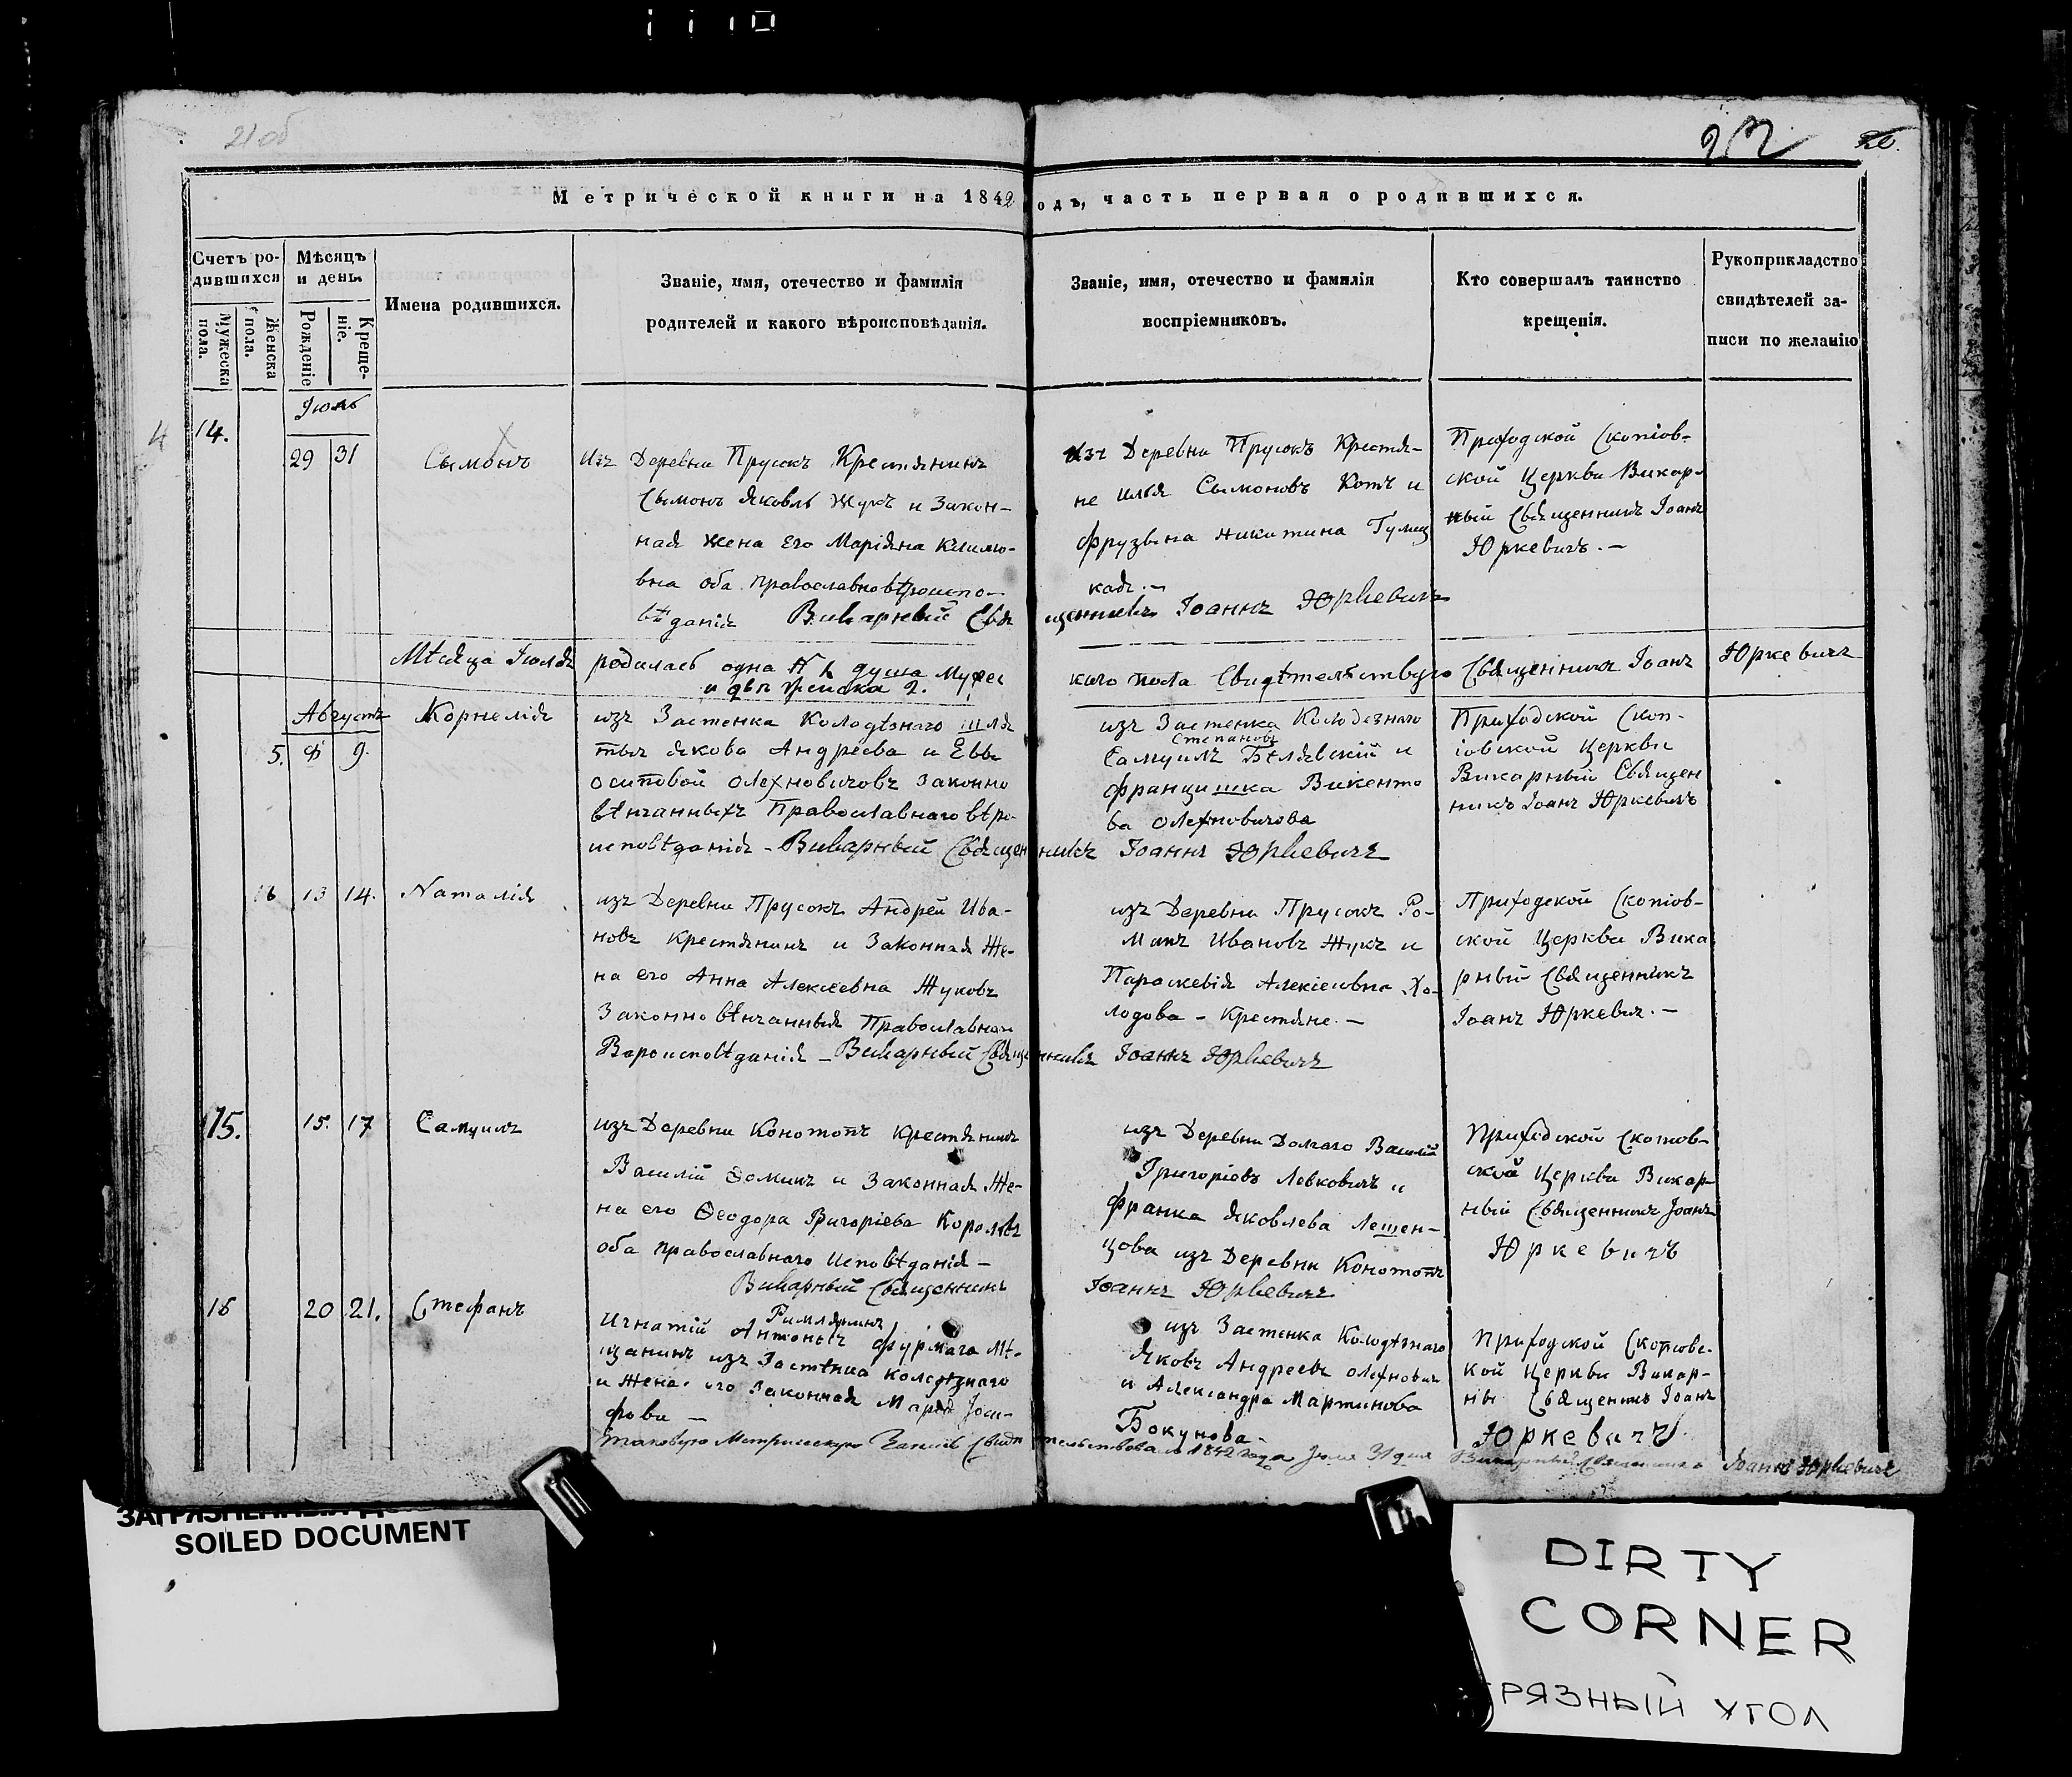 21 об
22
26.
Метрической книги на 1842 годъ, часть первая о родившихся.
Счетъ ро-
дившихся
Мѣсяцъ
и день.
Мужеска
пола.
Женска
пола.
Рожденіе
Креще-
ніе.
Имена родившихся.
Званіе, имя, отечество и фамилія
родителей и какого вѣроисповѣданія.
Званіе, имя, отечество и фамилія
воспріемниковъ.
Кто совершалъ таинство
крещенія.
Рукоприкладство
свидѣтелей за-
писи по желанію
4
14.
29 31
Сымонъ
Изъ Деревни Прусокъ Крестянинъ
Сымонъ Яковль Жукъ и Закон-
ная жена Его Маріяна Климо-
вна оба православновѣроиспо-
вѣданія
изъ Деревни Прусокъ Крестя-
не илья Сымоновъ Котъ и
фрузына никитина Гулиц
кая.-
Приходской Скопіов-
ской Церкви Викар-
ный Священникъ Іоанъ
Юркевичъ.-
Викарный Священникъ Іоаннъ Юркевичъ
Мѣсяца Іюля родилась одна № 1 душа мужес
каго пола Свидѣтелствую Священникъ Іоанъ Юркевичъ
и двѣ женска 2.
Августъ
5. 9.
Корнелія
изъ Застенка Колодѣзнаго шля
тыч якова Андрѣева и Евы
осиповой олехновичовъ законно
вѣнчанныхъ Православнаго вѣро-
исповѣданія - Викарный Священникъ Іоаннъ Юркевичъ
изъ Застенка Колодезнаго
Степановъ
Самуилъ Бѣлявскій и
францишка Викенто
ва олехновичова
Приходской Скоп-
іовской Церкви
Викарный Священ
никъ Іоанъ Юркевичъ
16 13 14.
Nаталія
изъ Деревни Прусокъ Андрей Ива-
новъ Крестянинъ и Законная Же-
на его Анна Алексеевна Жуковъ
Законно вѣнчанныя Православнаго
Вѣроисповѣданія - Викарный Священникъ Іоаннъ Юркевичъ
изъ Деревни Прусокъ Ро-
манъ Ивановъ Жукъ и
Параскевія Алексіевна Хо-
лодова - Крестяне.-
Приходской Скопіов-
ской Церкви Вика
рный Священникъ
Іоанъ Юркевич.-
15.
15. 17
Самуилъ
изъ Деревни Конотопъ Крестянинъ
Василій Ѳоминъ и Законная Же-
на его Ѳеодора Григоріева
оба православнаго Исповѣданія -
Викарный Священникъ Іоаннъ Юркевичъ
изъ Деревни Долгаго Василій
Григоріевъ Левковичъ и
франка Яковлева Лешен-
цова изъ Деревни Конотопъ
Приходской Скопов-
ской Церкви Викар-
ный Священникъ Іоанъ
Юркевичъ
16
20 21.
Стефанъ
Римлянинъ
Игнатій Антоновъ Мѣ-
щанинъ изъ Застѣнка Колодѣзнаго
и Жена его законная Марія Іоси-
фова -
изъ Застенка Колодѣзнаго
Яковъ Андреевъ олехновичъ
и Александра Мартинова
Бокунова.
Приходской Скоповс-
кой Церкви Викар-
ны Священикъ Іоанъ
Юркевичъ
таковую Метрическую Запись Свидѣтелствовалъ 1842 года Іюля 31 дня Викарный Священникъ Іоаннъ Юркевичъ
SOILED DOCUMENT
DIRTY
CORNER
РЯЗНЫЙ УГОЛ